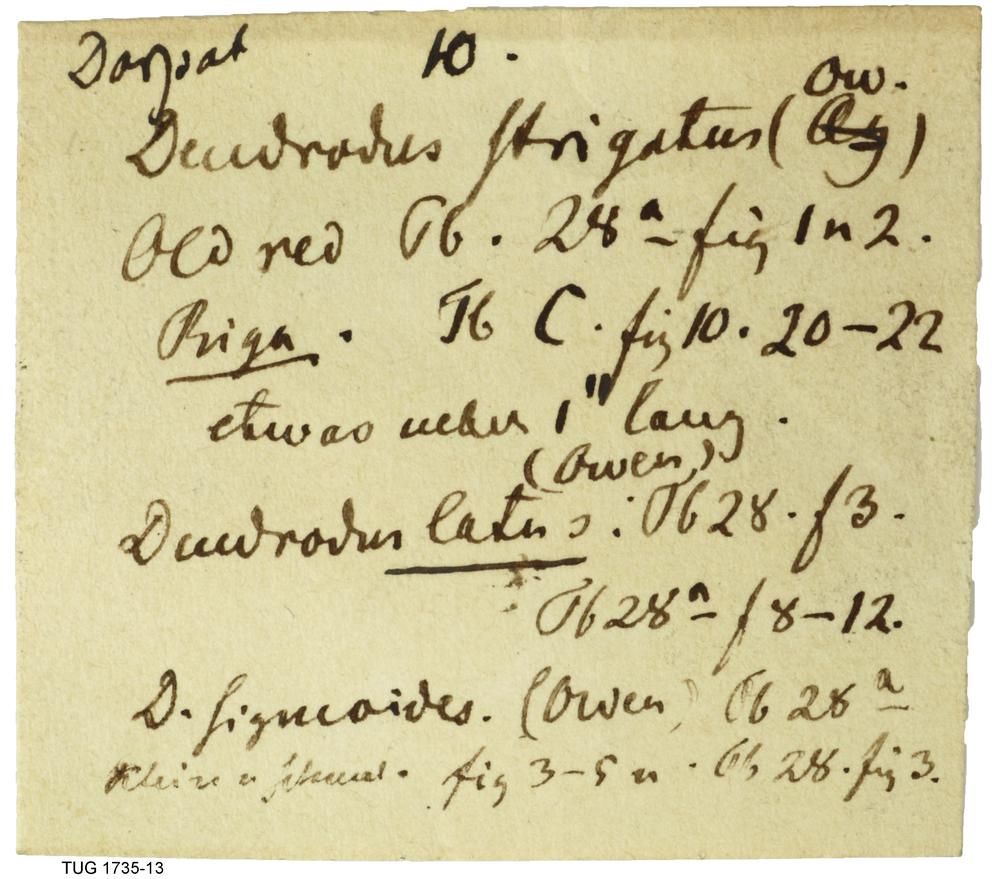 Dorpat 10.
Ow.
Dendrodus strigatus (Ag)
Old red Tb. 28a fig 1 u 2.
Riga. Tb C. fig 10. 20-22
etwas ueber 1" lang.
(Owen)
Dendrodus latus: Tb 28. f 3.
Tb 28a f 8-12.
D. sigmoides. (Owen) Tb 28a
Klein u schmal. fig 3-5 u. Tb 28. fig 3.
TUG 1735-13